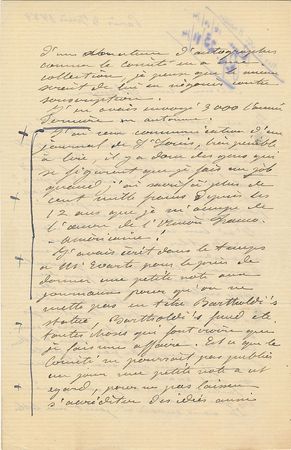 d'un donateur d'autographes
comme le Comité en a
collection, je pense que
serait de lui en contre
souscription.
J'en avais envoyé 3000 l'année
dernière en automne.
J'ai reçu communication d'un
journal de St Louis, très pénible
à lire, il y a donc des gens qui
se figurent que je fais un job
quand j'ai sacrifié plus de
cent mille francs depuis les
12 ans que je m'occupe de
l'œuvre de l'Union Franco-
Américaine.
J'avais écrit dans le temps
à Mr Evarts pour le prier de
donner une petite note aux
journaux pour qu'on ne
mette pas en tête Bartholdi's
statue, Bartholdi's fund et
toutes choses qui font croire que
je fais une affaire. Est ce que le
Comité ne pourrait pas publier
un jour une petite note à cet
égard, pour ne pas laisser
s'accréditer des idées aussi